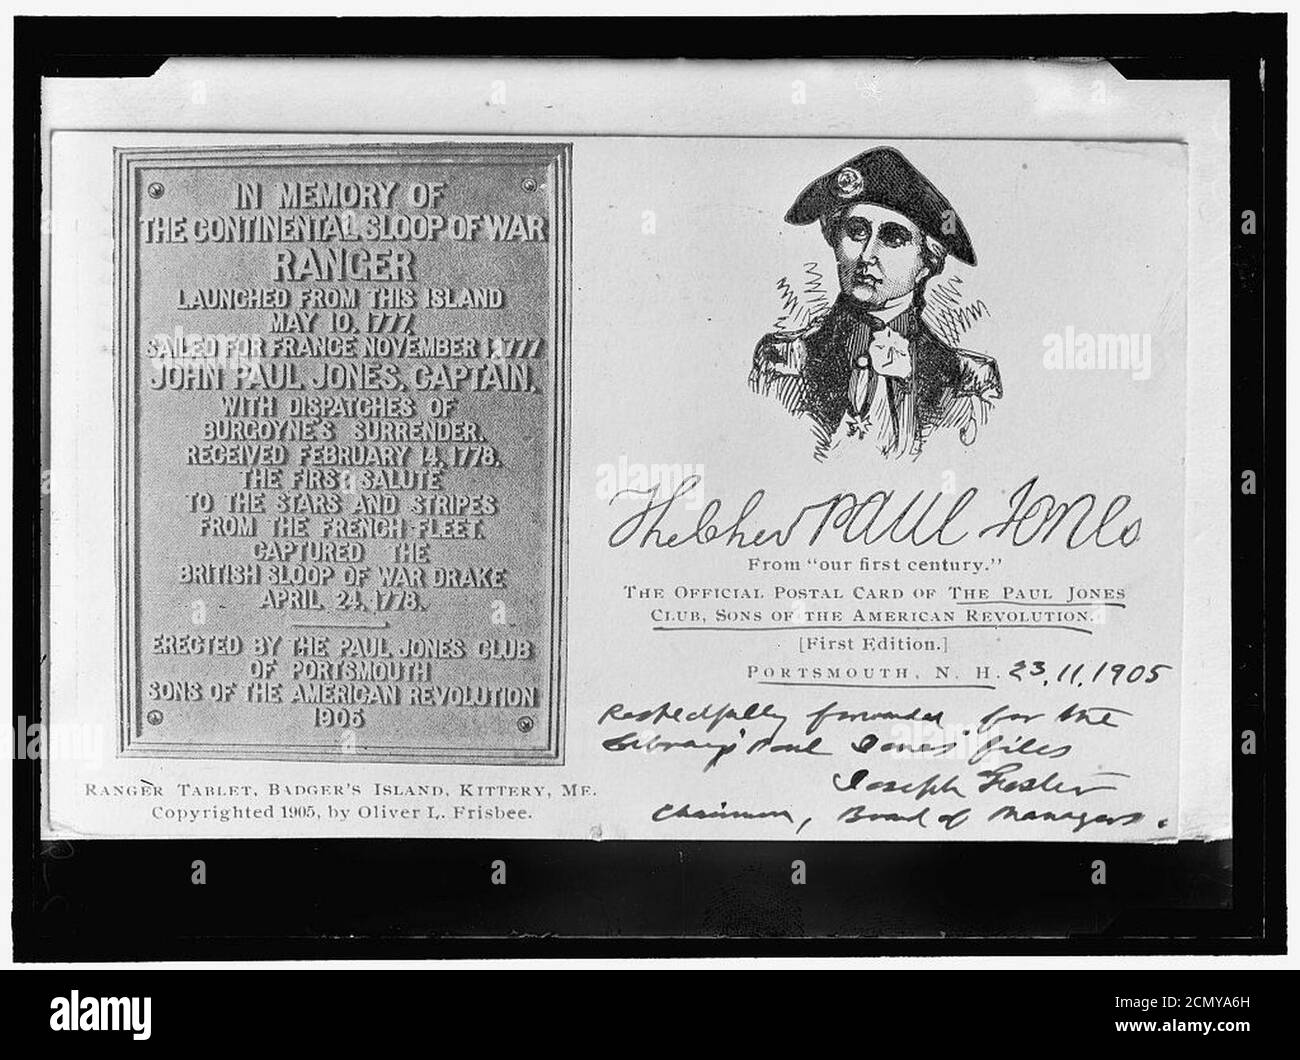 IN MEMORY OF
THE CONTINENTAL SLOOP OF WAR
RANGER
LAUNCHED FROM THIS ISLAND
MAY 10, 1777.
SAILED FOR FRANCE NOVEMBER 1, 1777
JOHN PAUL JONES, CAPTAIN,
WITH DISPATCHES OF
BURGOYNE'S SURRENDER.
RECEIVED FEBRUARY 14, 1778.
THE FIRST SALUTE
TO THE STARS AND STRIPES
FROM THE FRENCH FLEET.
CAPTURED THE
BRITISH SLOOP OF WAR DRAKE
APRIL 24, 1778.
ERECTED BY THE PAUL JONES CLUB
OF PORTSMOUTH
SONS OF THE AMERICAN REVOLUTION
1905
RANGER TABLET, BADGER'S ISLAND, KITTERY, ME.
Copyrighted 1905, by Oliver L. Frisbee.
PAUL JONES
From "our first century."
THE OFFICIAL POSTAL CARD OF THE PAUL JONES
CLUB, SONS OF THE AMERICAN REVOLUTION.
[First Edition.]
PORTSMOUTH, N. H. 23.11.1905
Respectfully forwarded for the
Library's "Paul Jones" files
Joseph Foster
Chairman, Board of Managers.
alamy
alamy
Image ID: 2CMYA6H
www.alamy.com